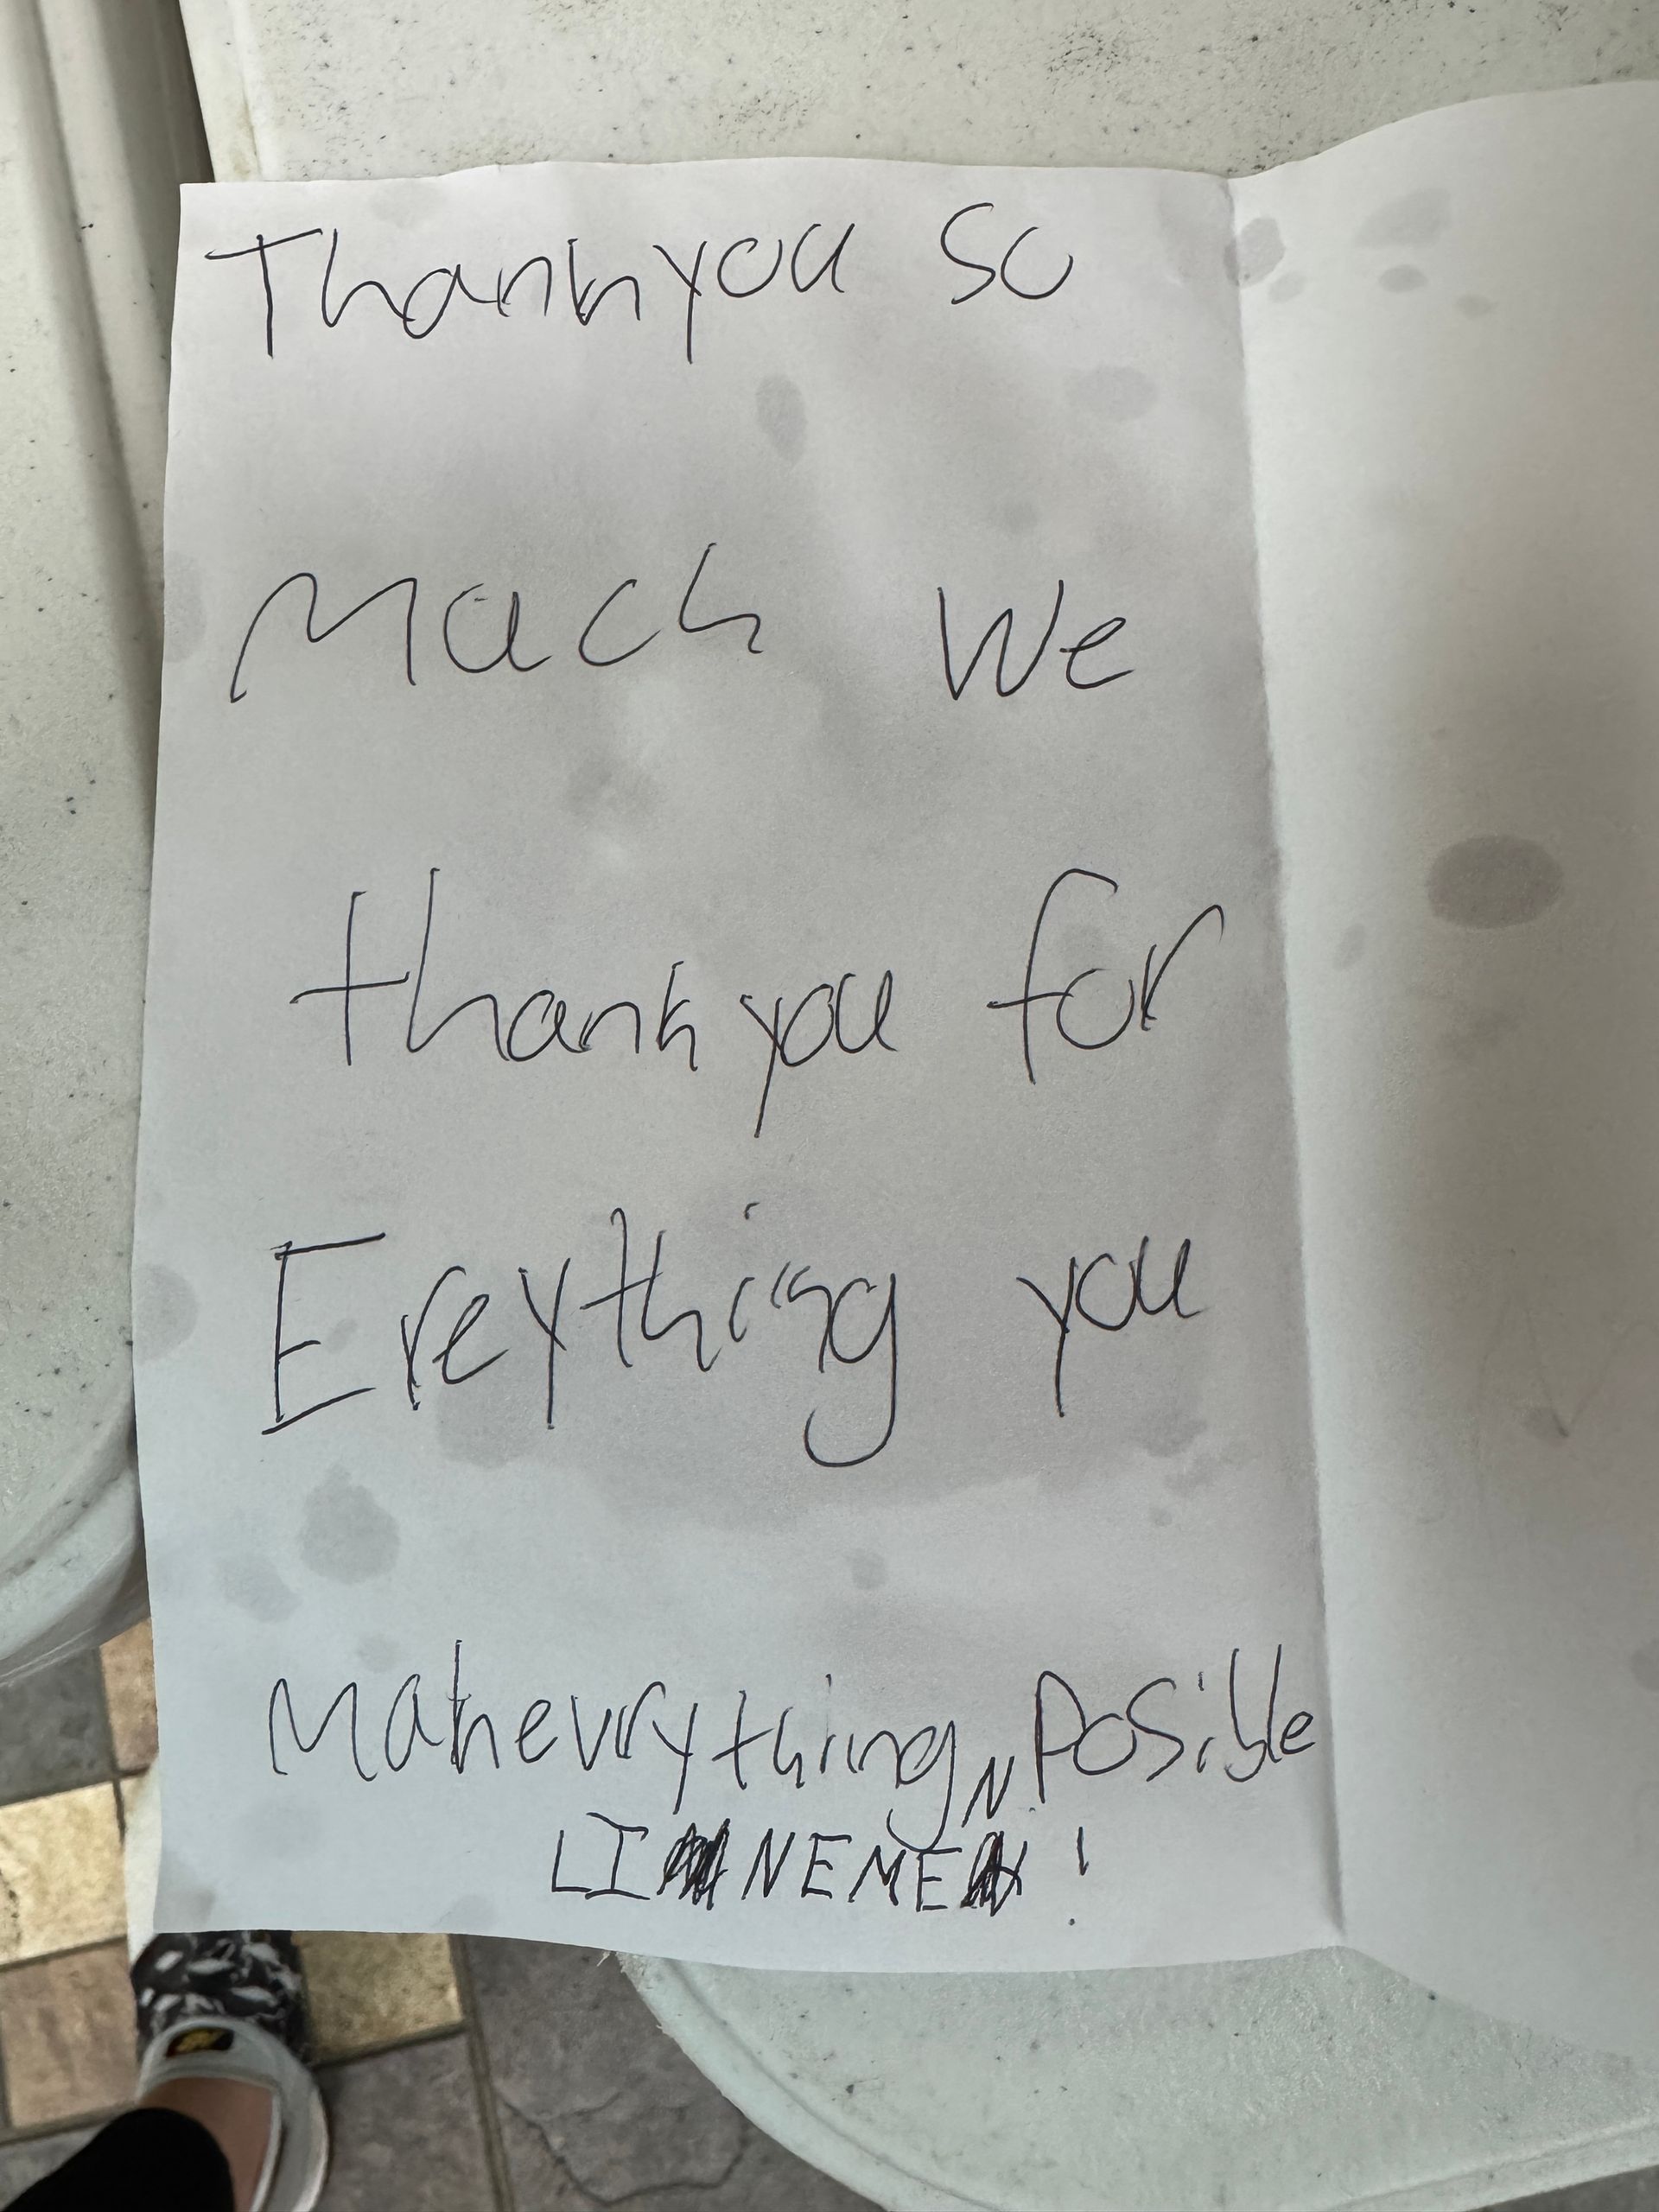 Thankyou so
Mach We
thank you for
Ereything you
Makevrything, posible